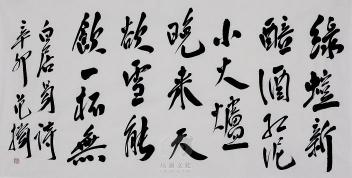 綠螘新
醅酒紅泥
小火爐
晚來天
欲雪能
飲一杯無
白居易詩
辛卯范